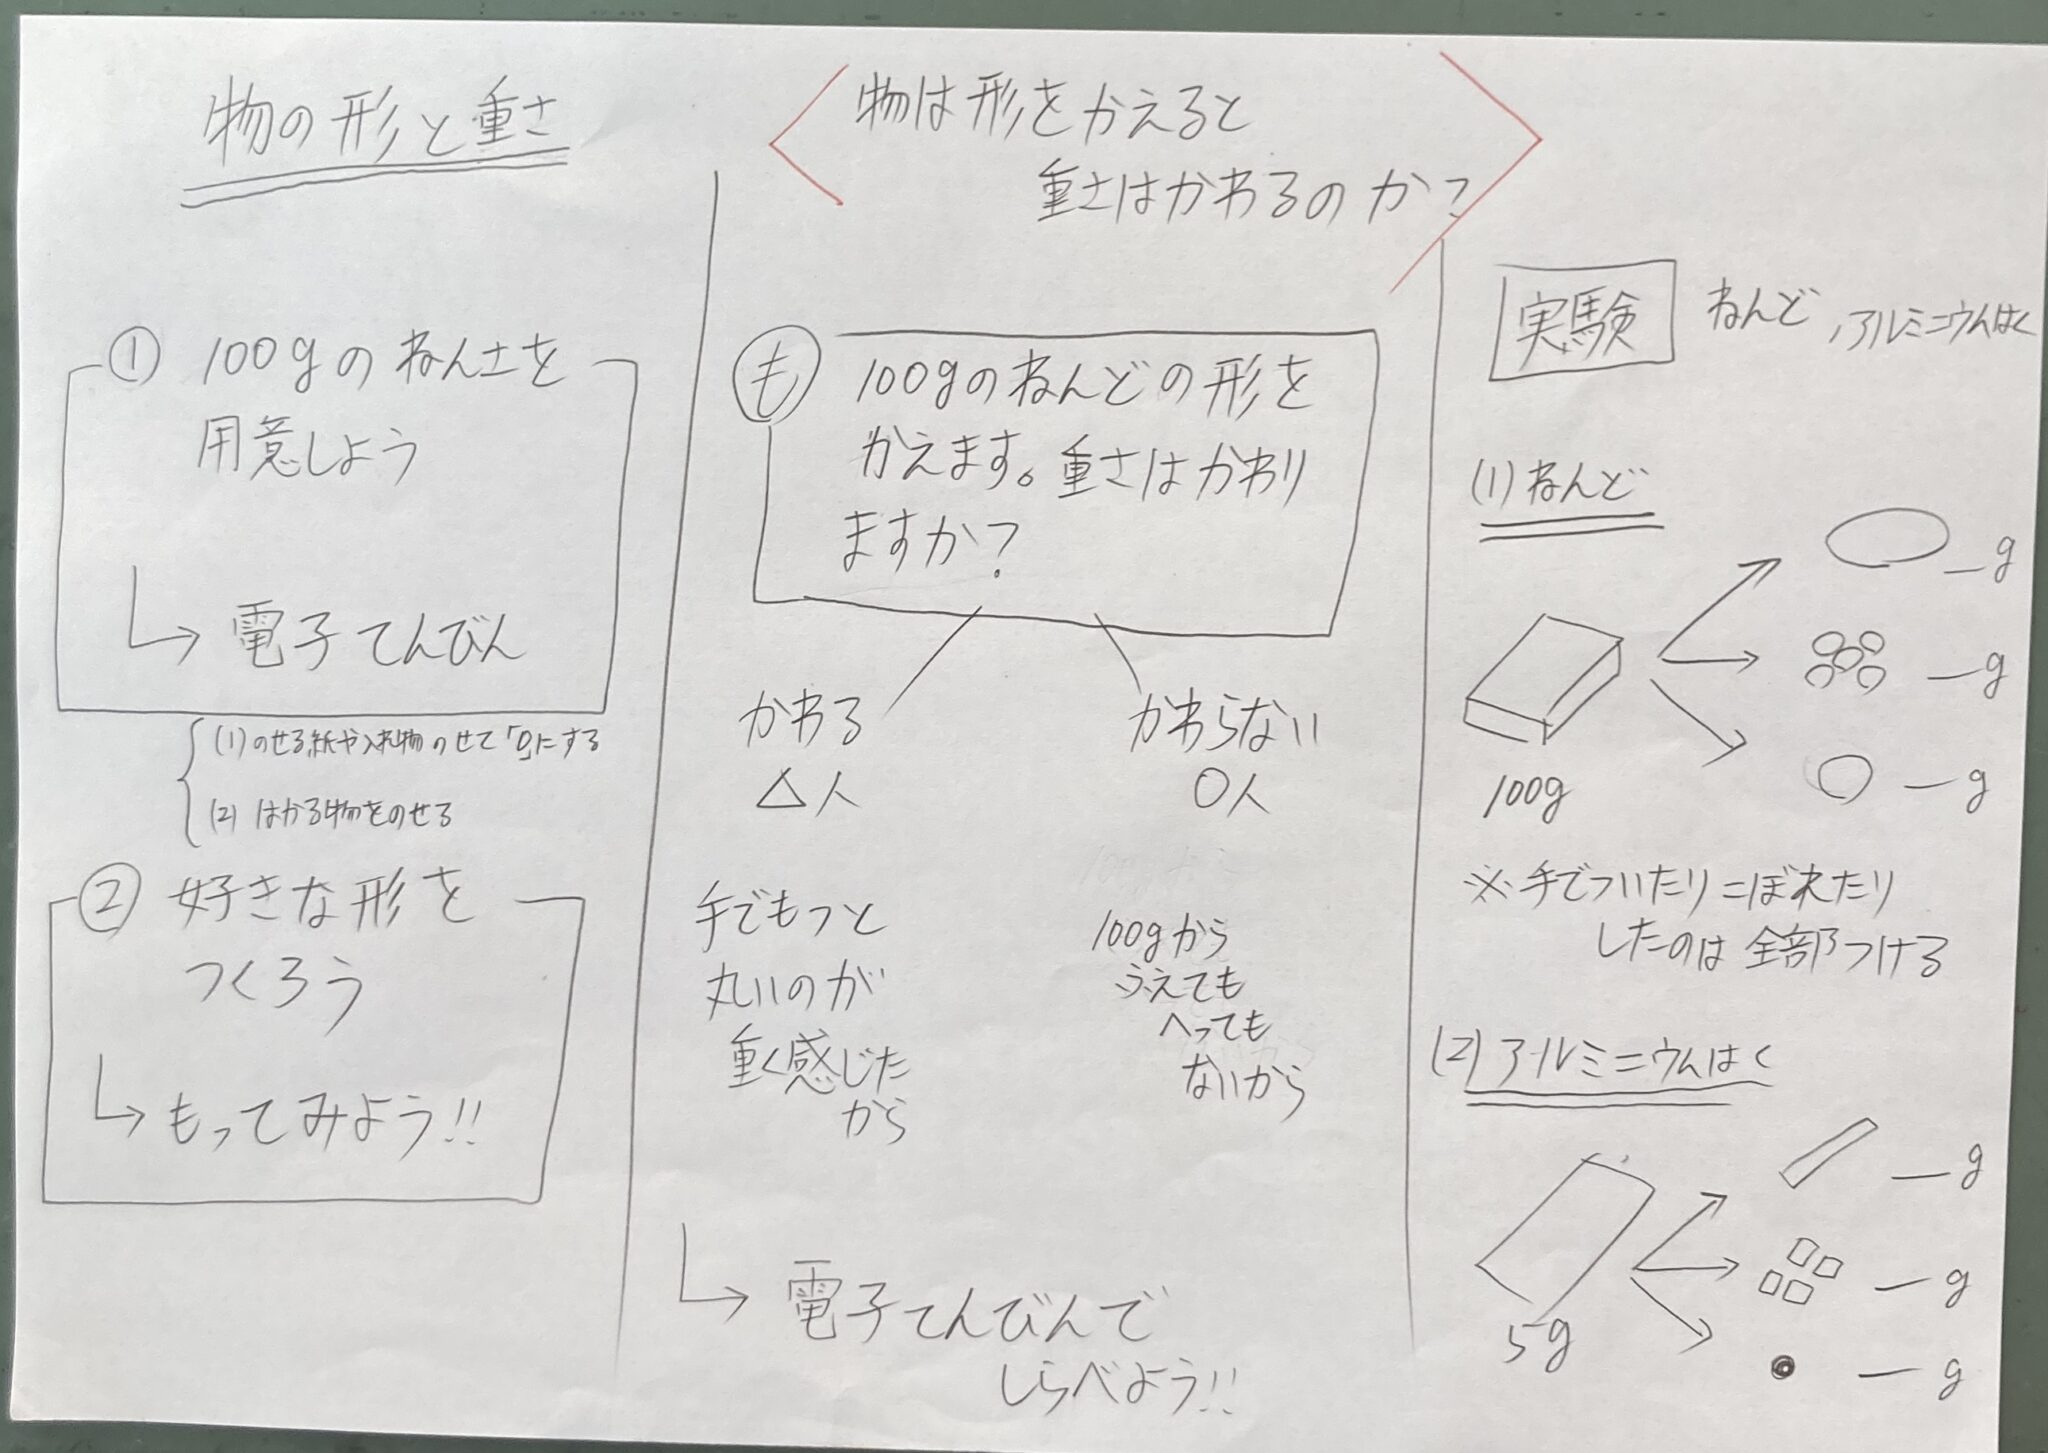 物の形と重さ
物は形をかえると
重さはかわるのか?
① 100gのねん土を
用意しよう
電子てんびん
(1)のせる紙や入れ物のせて「0」にする
(2) はかる物をのせる
② 好きな形を
つくろう
もってみよう!!
も 100gのねんどの形を
かえます。重さはかわり
ますか?
かわる
△人
かわらない
○人
手でもつと
丸いのが
重く感じた
から
100gから
ふえても
へっても
ないから
電子てんびんで
しらべよう!!
実験 ねんど, アルミニウムはく
(1)ねんど
100g
_g
_g
_g
※手でついたりこぼれたり
したのは全部つける
(2) アルミニウムはく
5g
_g
_g
_g